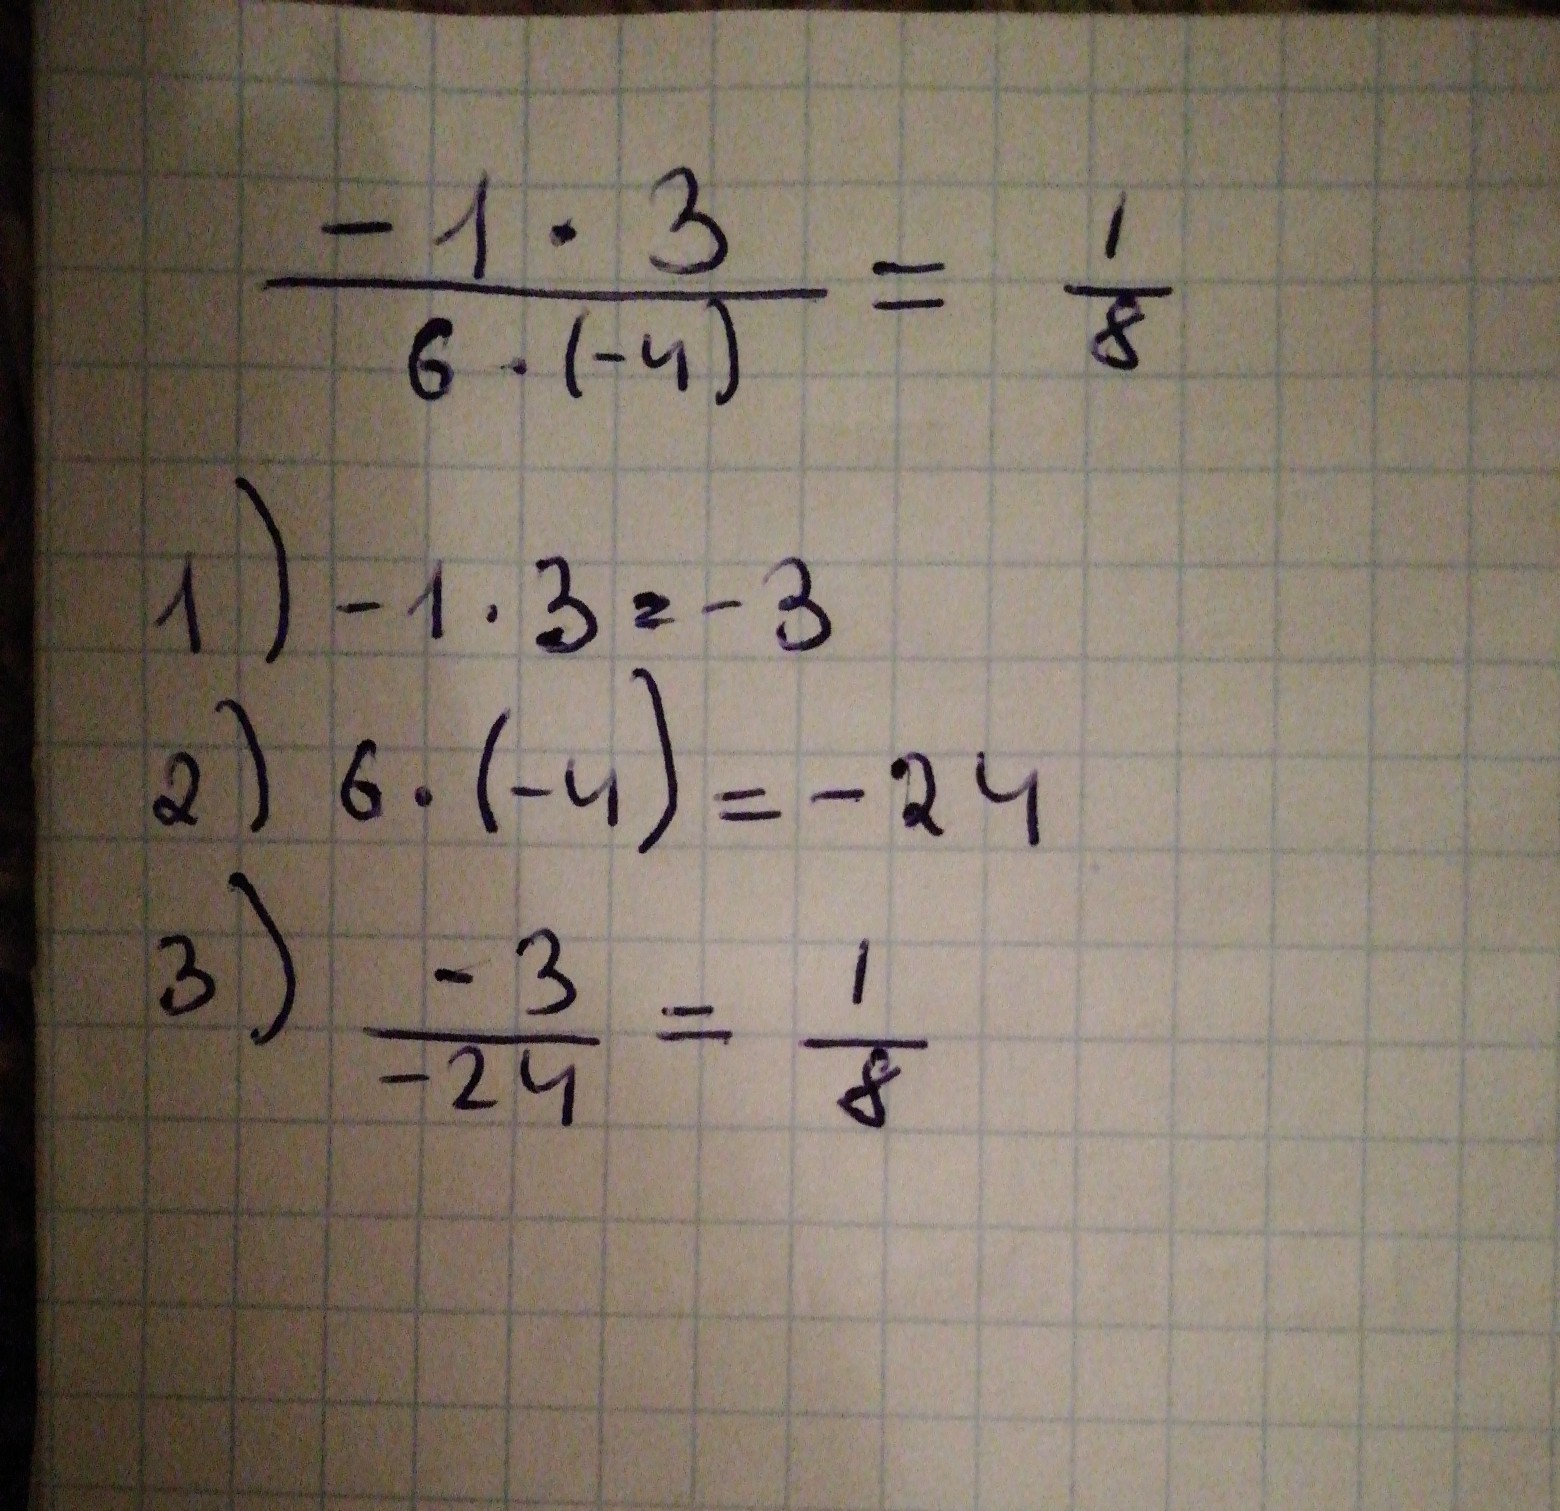 \frac{-1 \cdot 3}{6 \cdot (-4)} = \frac{1}{8}
1) -1 \cdot 3 = -3
2) 6 \cdot (-4) = -24
3) \frac{-3}{-24} = \frac{1}{8}